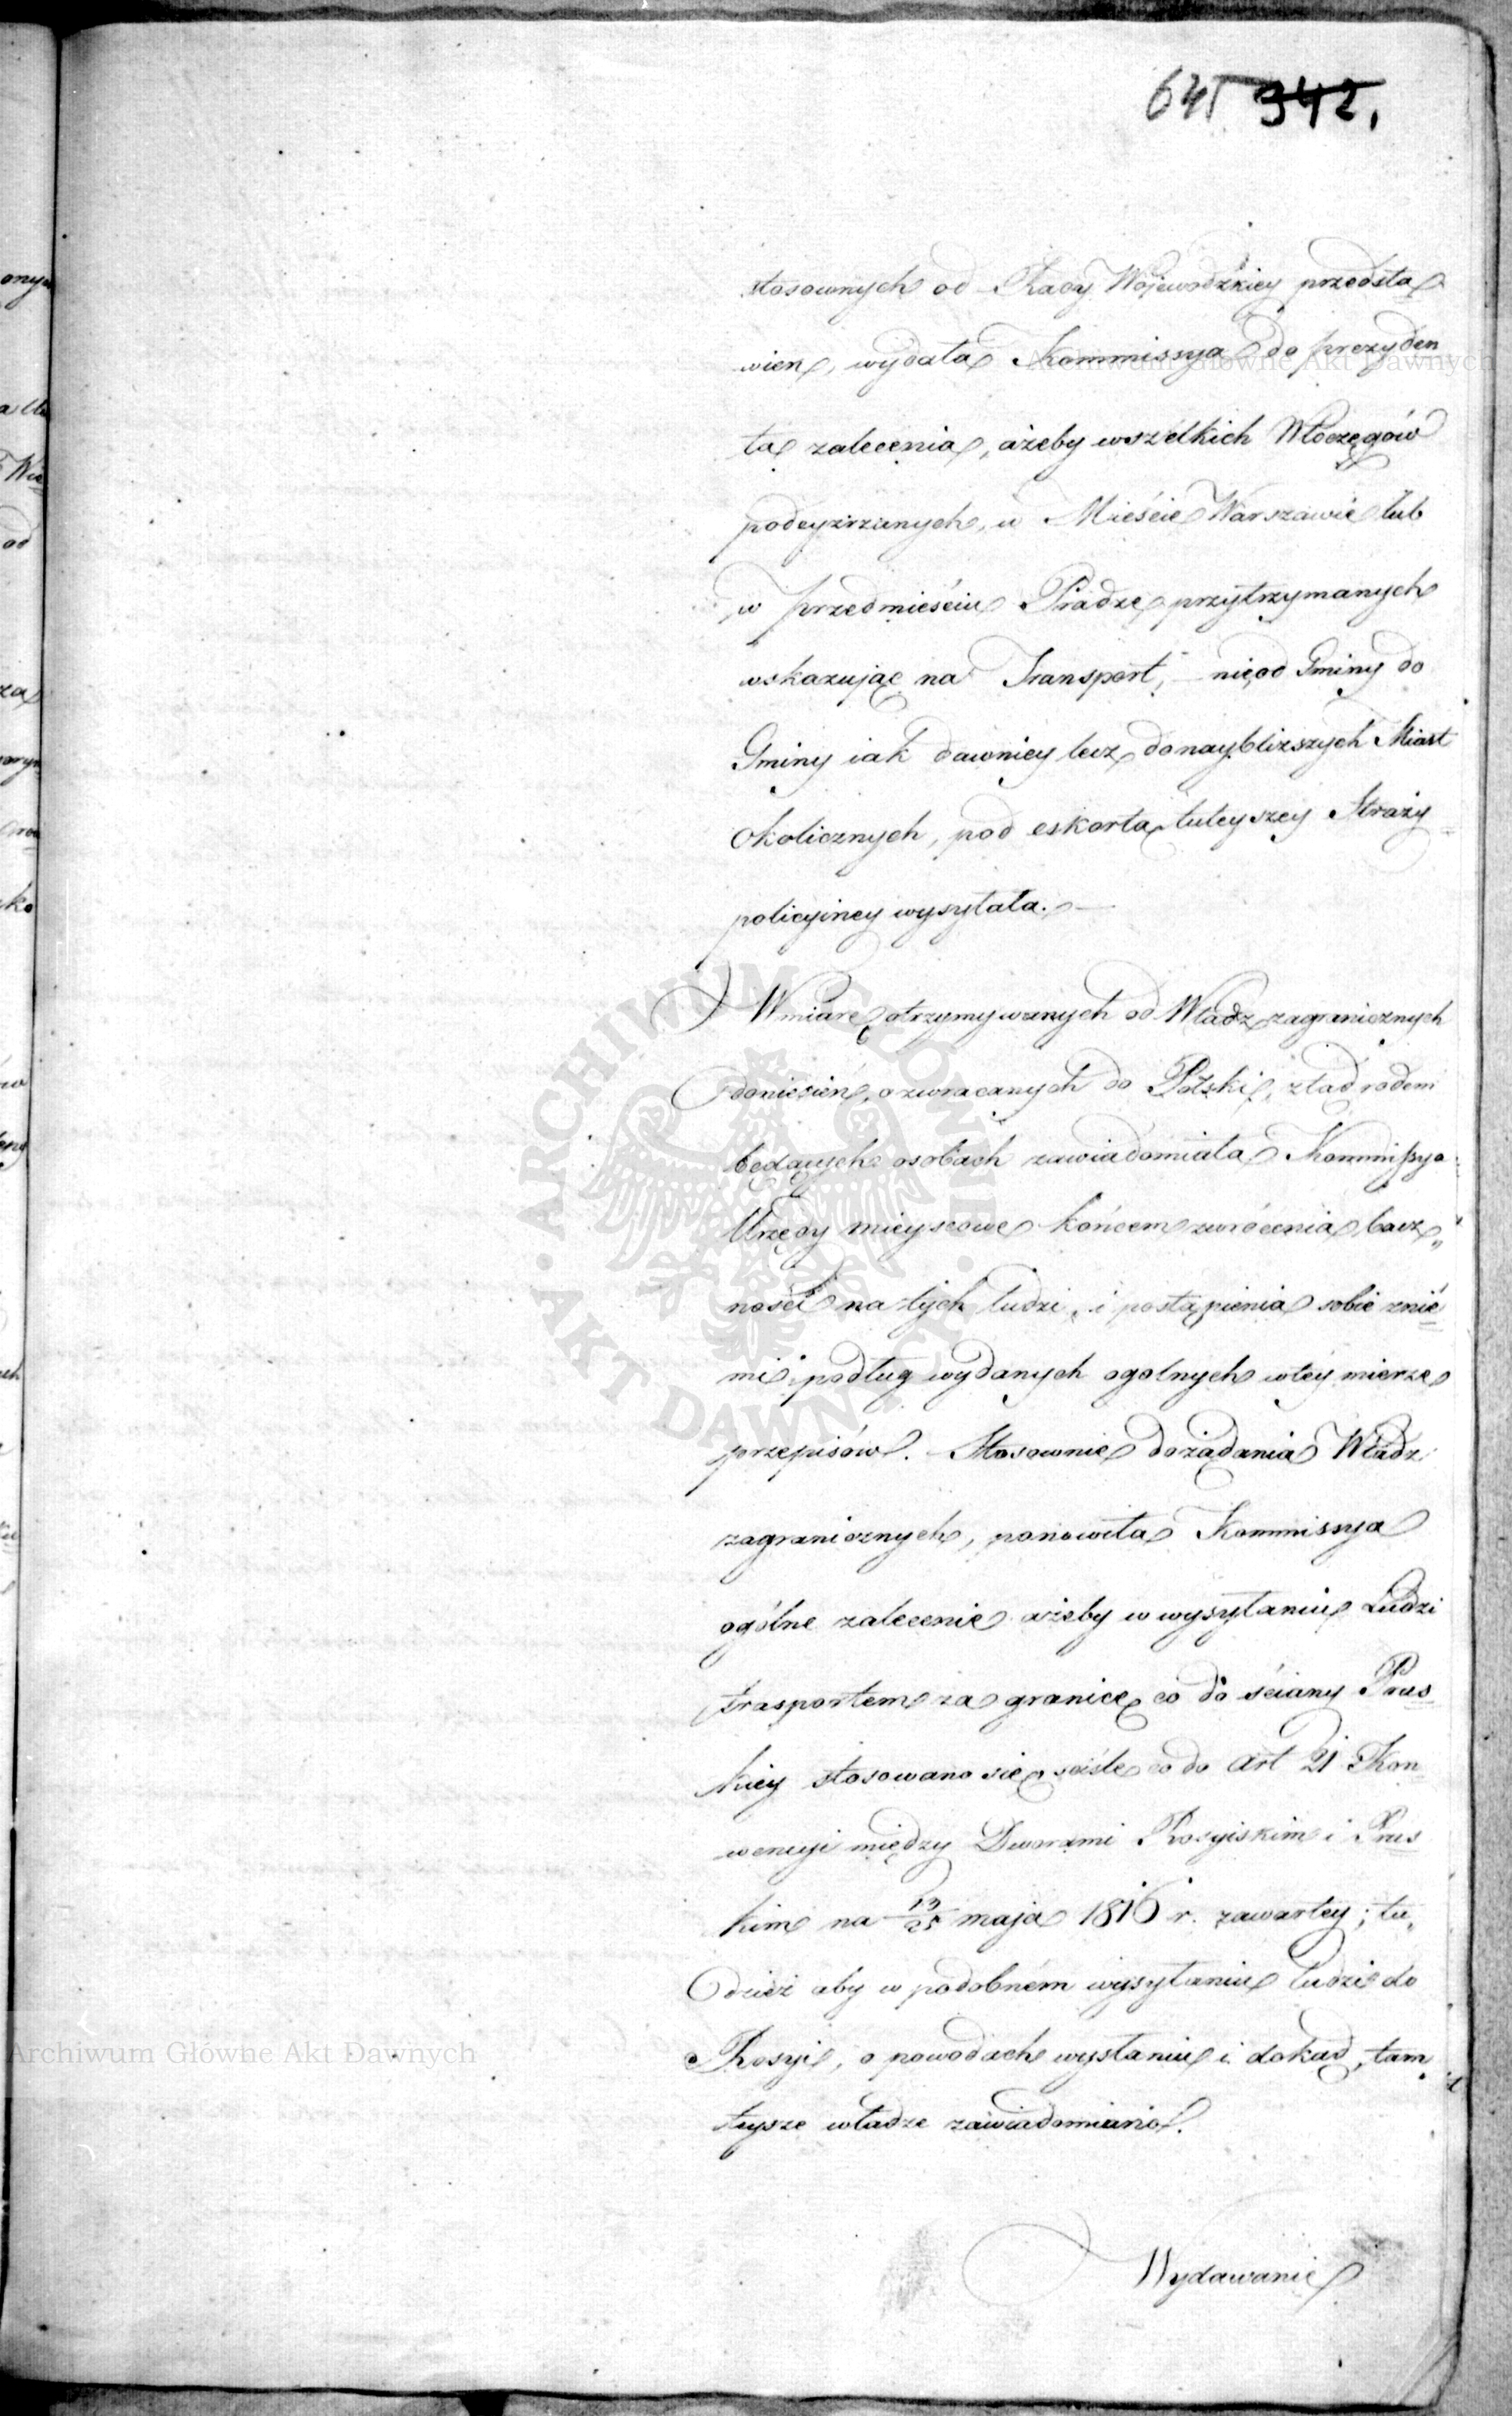 645 942.
stosownych od Rady Wojewodzkiey przedsta
wień, wydała Kommissya do prezyden
ta zalecenia, ażeby wszelkich Włoczęgów
podeyzrzanych, w Mieście Warszawie lub
w przedmieściu Pradze przytrzymanych
wskazując na Transport, nie od Gminy do
Gminy iak dawniey lecz do naybliższych Miast
Okolicznych, pod eskorta tuteyszey Straży
policyiney wysyłała.
W miarę otrzymywanych od Władz zagranicznych
doniesień, o zwracanych do Polski, ztąd rodem
będących osobach zawiadomiała Kommissya
Urzędy mieyscowe końcem zwrócenia bacz„
ności na tych ludzi, i postąpienia sobie z nie=
mi, podług wydanych ogolnych w tey mierze
przepisów. Stosownie do żądania Władz
zagranicznych, ponowiła Kommissya
ogólne zalecenie ażeby w wysyłaniu Ludzi
trasportem za granicę co do ściany Prus=
kiey stosowano się ściśle co do art 21 Kon=
wencyi między Dworami Rosyiskim i Prus=
kim na 13/25 maja 1816 r. zawartey; tu„
dzież aby w podobném wysyłaniu ludzi do
Rosyi, o powodach wysłaniu i dokąd, tam
teysze władze zawiadomiano.
Wydawanie
Archiwum Główne Akt Dawnych
Archiwum Główne Akt Dawnych
ARCHIWUM GŁÓWNE AKT DAWNYCH